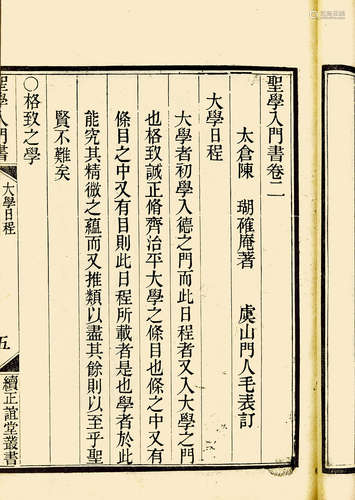 聖學入門書卷二
太倉陳 瑚確庵著 虞山門人毛表訂
大學日程
大學者初學入德之門而此日程者又入大學之門
也格致誠正脩齊治平大學之條目也條之中又有
條目之中又有目則此日程所載者是也學者於此
能究其精微之蘊而又推類以盡其餘則以至乎聖
賢不難矣
○格致之學
聖學入門書
大學日程
五
續正誼堂叢書